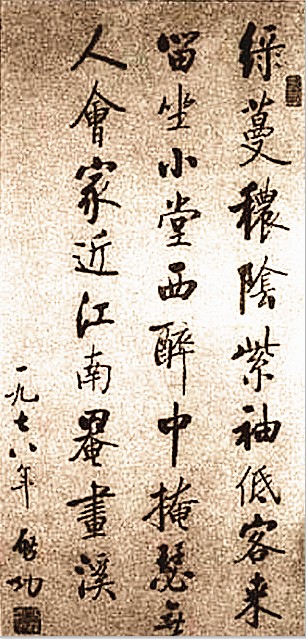 緑蔓穠陰紫袖低客来
留坐小堂西醉中掩瑟無
人會家近江南罨畫溪
一九七八年 啟功